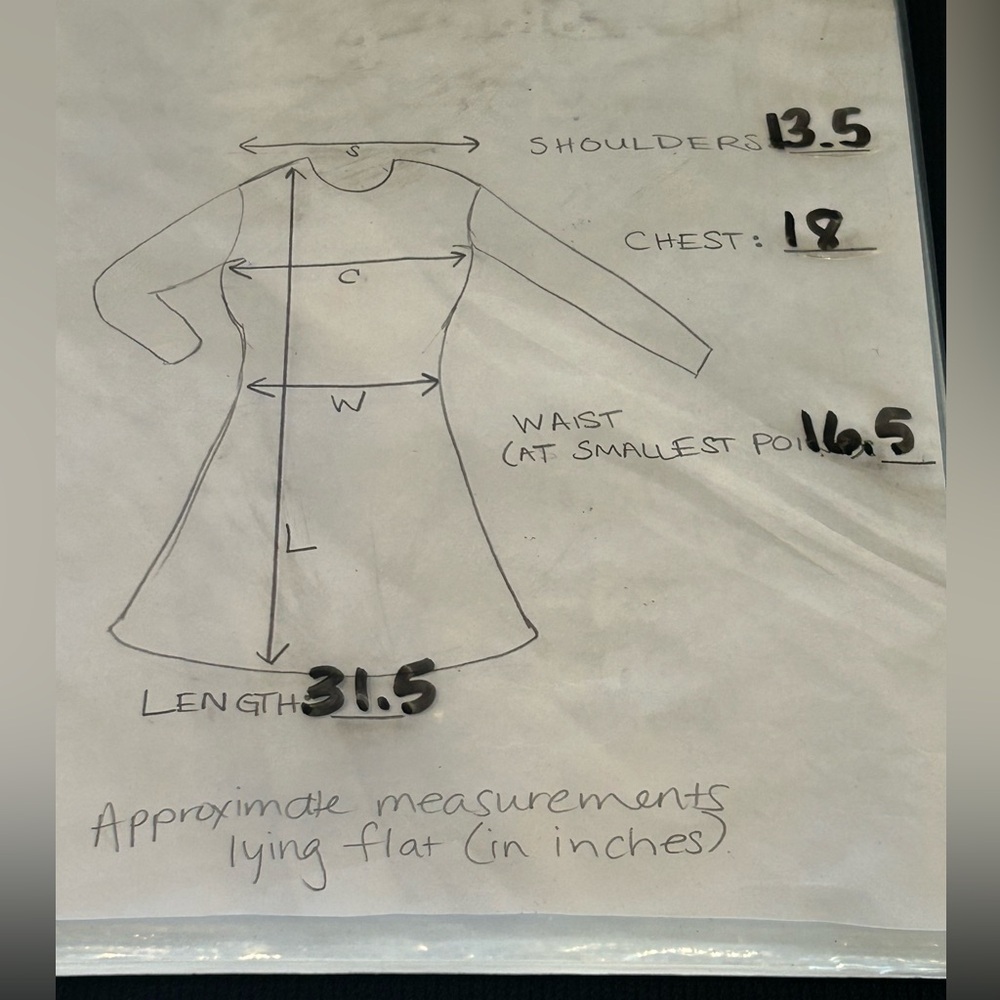 S
SHOULDERS 13.5
CHEST: 18
C
W
WAIST
(AT SMALLEST POI 16.5
L
LENGTH: 31.5
Approximate measurements
lying flat (in inches).